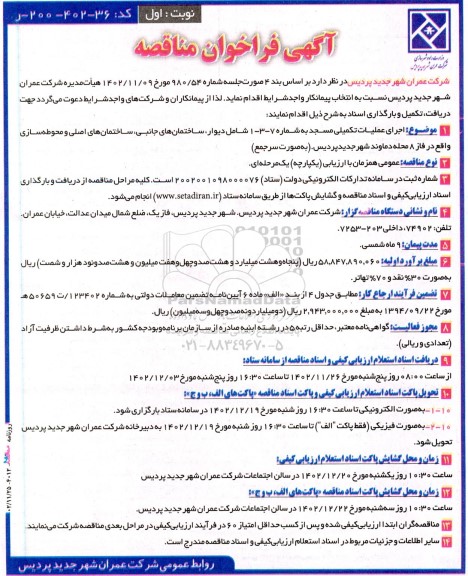 نوبت: اول
کد: ۳۶-۴۰۲-۲۰۰-ر
آگهی فراخوان مناقصه
شرکت عمران شهر جدید پردیس در نظر دارد بر اساس بند ۴ صورت‌جلسه شماره ۹۸۰/۵۴ مورخ ۱۴۰۲/۱۱/۰۹ هیأت‌مدیره شرکت عمران
شهر جدید پردیس نسبت به انتخاب پیمانکار واجد شرایط اقدام نماید. لذا از پیمانکاران و شرکت‌های واجد شرایط دعوت می‌گردد جهت
دریافت، تکمیل و بارگذاری اسناد به شرح ذیل اقدام نمایند:
۱ موضوع: اجرای عملیات تکمیلی مسجد به شماره ۷-۳-۱ شامل دیوار، ساختمان‌های جانبی، ساختمان‌های اصلی و محوطه‌سازی
واقع در فاز ۸ محله دماوند شهر جدید پردیس. (به‌صورت سرجمع)
۲ نوع مناقصه: عمومی همزمان با ارزیابی (یکپارچه) یک‌مرحله‌ای.
۳ شماره ثبت در سامانه تدارکات الکترونیکی دولت (ستاد) ۲۰۰۲۰۰۱۰۹۸۰۰۰۰۷۶ است. کلیه مراحل مناقصه از دریافت و بارگذاری
اسناد ارزیابی کیفی و اسناد مناقصه و گشایش پاکت‌ها از طریق سامانه ستاد (www.setadiran.ir) انجام می‌شود.
۴ نام و نشانی دستگاه مناقصه‌گزار: شرکت عمران شهر جدید پردیس. شهر جدید پردیس، فاز یک، ضلع شمال میدان عدالت، خیابان عمران.
تلفن: ۷۴۹۰۲، داخلی ۲۰۳-۷۲۵۳
۵ مدت پیمان: ۹ ماه شمسی.
۶ مبلغ برآورد اولیه: ۵۸،۸۴۷،۸۹۰،۰۶۰ ریال (پنجاه و هشت میلیارد و هشتصد و چهل و هفت میلیون و هشتصد و نود هزار و شصت) ریال
به‌صورت ۳۰٪ نقد و ۷۰٪ تهاتر.
۷ تضمین فرآیند ارجاع کار: مطابق جدول ۴ از بند «الف» ماده ۶ آیین‌نامه تضمین معاملات دولتی به شماره ۱۲۳۴۰۲/ت۵۰۶۵۹ هـ
مورخ ۱۳۹۴/۰۹/۲۲ به مبلغ ۲،۹۴۳،۰۰۰،۰۰۰ ریال (دو میلیارد و نهصد و چهل و سه میلیون) ریال.
۸ مجوز فعالیت: گواهی‌نامه معتبر، حداقل رتبه ۵ در رشته ابنیه صادره از سازمان برنامه و بودجه کشور به شرط داشتن ظرفیت آزاد
(تعدادی و ریالی).
۹ دریافت اسناد استعلام ارزیابی کیفی و اسناد مناقصه از سامانه ستاد:
از ساعت ۰۸:۰۰ روز پنج‌شنبه مورخ ۱۴۰۲/۱۱/۲۶ تا ساعت ۱۶:۳۰ روز پنج‌شنبه مورخ ۱۴۰۲/۱۲/۰۳
۱۰ تحویل پاکت اسناد استعلام ارزیابی کیفی و پاکت اسناد مناقصه «پاکت‌های الف، ب و ج»:
۱-۱۰- به‌صورت الکترونیکی تا ساعت ۱۶:۳۰ روز شنبه مورخ ۱۴۰۲/۱۲/۱۹ در سامانه ستاد بارگذاری شود.
۲-۱۰- به‌صورت فیزیکی (فقط پاکت "الف") تا ساعت ۱۶:۳۰ روز شنبه مورخ ۱۴۰۲/۱۲/۱۹ به دبیرخانه شرکت عمران شهر جدید پردیس
تحویل شود.
۱۱ زمان و محل گشایش پاکت اسناد استعلام ارزیابی کیفی:
ساعت ۱۰:۳۰ روز یکشنبه مورخ ۱۴۰۲/۱۲/۲۰ در سالن اجتماعات شرکت عمران شهر جدید پردیس
۱۲ زمان و محل گشایش پاکت اسناد مناقصه «پاکت‌های الف، ب و ج»:
ساعت ۱۰:۳۰ روز سه‌شنبه مورخ ۱۴۰۲/۱۲/۲۲ در سالن اجتماعات شرکت عمران شهر جدید پردیس.
۱۳ مناقصه‌گران ابتدا ارزیابی کیفی شده و پس از کسب حداقل امتیاز ۶۰ در فرآیند ارزیابی کیفی در مراحل بعدی مناقصه شرکت می‌نمایند.
۱۴ سایر اطلاعات و جزئیات مربوط در اسناد استعلام ارزیابی کیفی و اسناد مناقصه مندرج است.
روابط عمومی شرکت عمران شهر جدید پردیس
ParsNamadData
۰۲۱-۸۸۳۴۹۶۷۰-۵